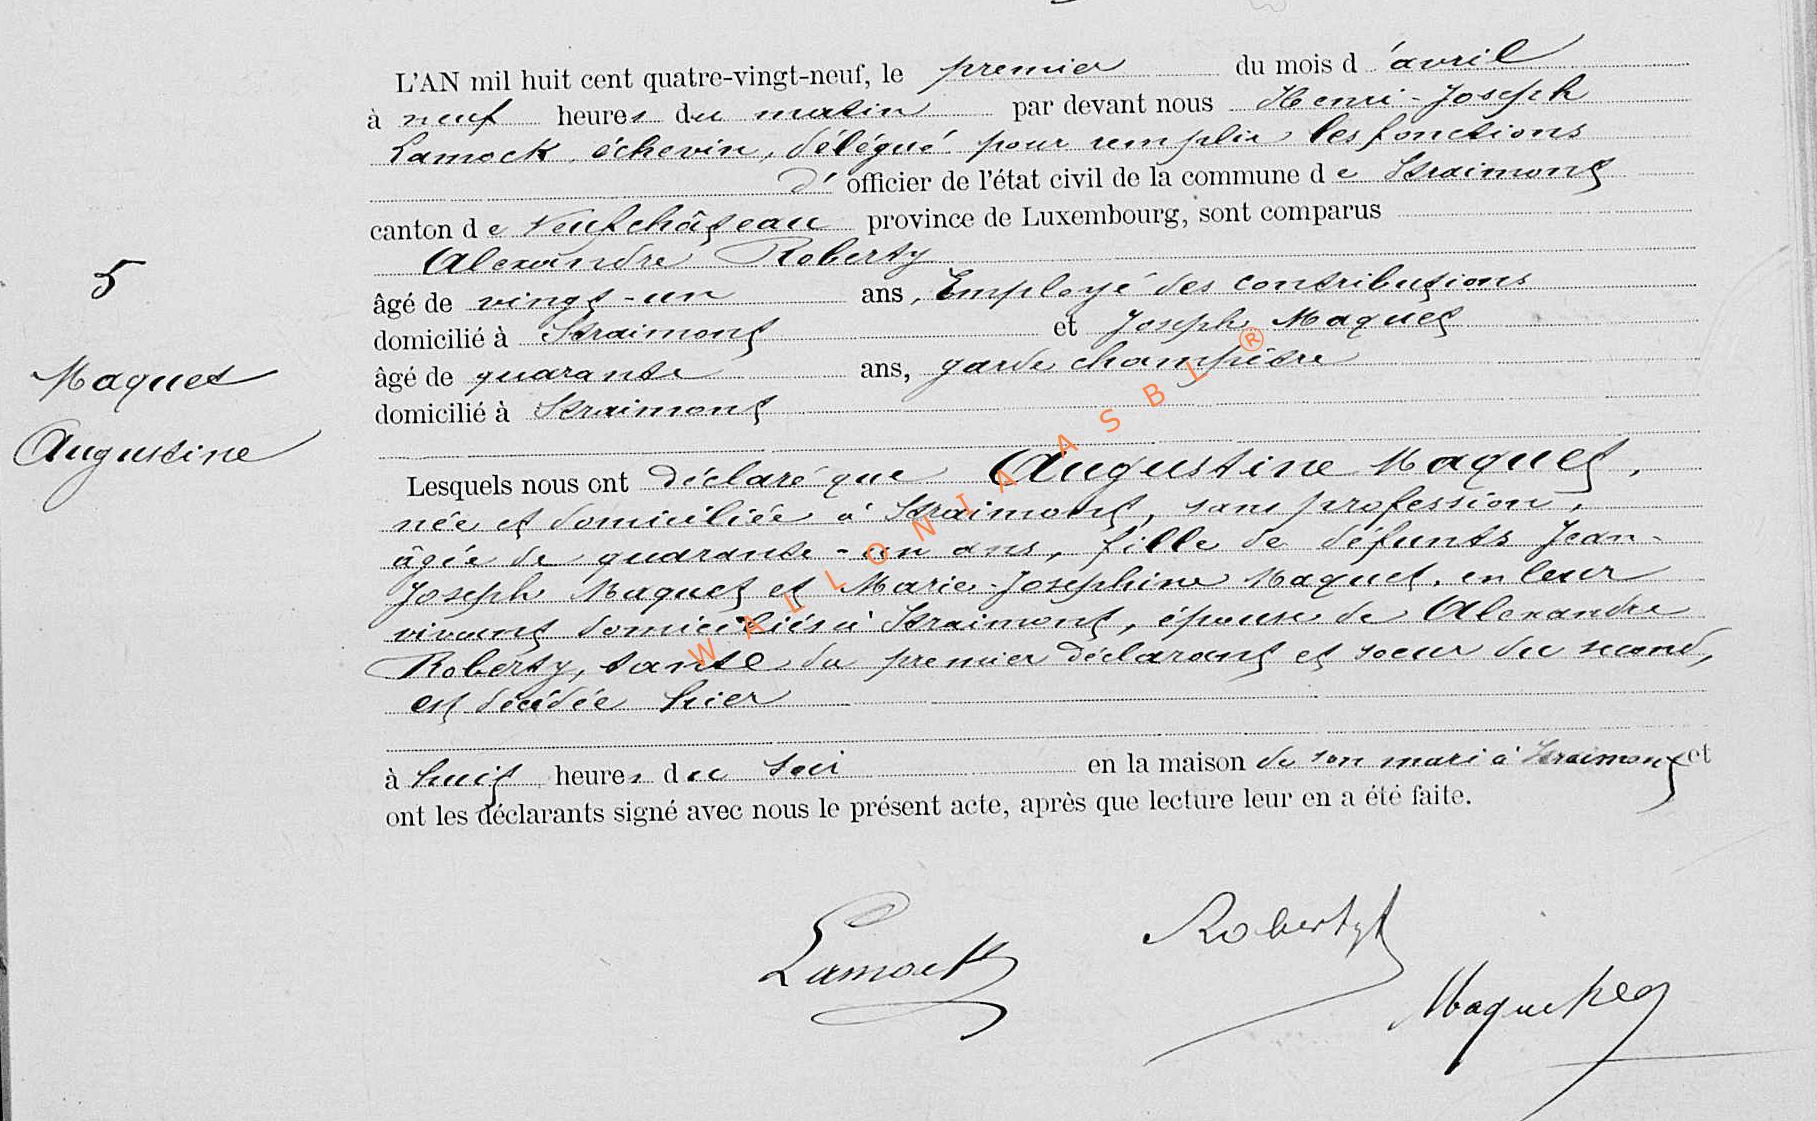 L'AN mil huit cent quatre-vingt-neuf, le premier du mois d'avril
à neuf heures du matin par devant nous Henri-Joseph
Lamock, échevin, délégué pour remplir les fonctions
d'officier de l'état civil de la commune de Straimont
canton de Neufchâteau province de Luxembourg, sont comparus
Alexandre Roberty
5
âgé de vingt-un ans, Employé des contributions
domicilié à Straimont et Joseph Maquet
Maquet
âgé de quarante ans, garde champêtre
domicilié à Straimont
Augustine
Lesquels nous ont déclaré que Augustine Maquet,
née et domiciliée à Straimont, sans profession,
âgée de quarante-un ans, fille de défunts Jean-
Joseph Maquet et Marie-Joséphine Maquet, en leur
vivant domiciliés à Straimont, épouse de Alexandre
Roberty, tante du premier déclarant et soeur du second,
est décédée hier
à huit heures du soir en la maison de son mari à Straimont et
ont les déclarants signé avec nous le présent acte, après que lecture leur en a été faite.
Lamock
Roberty
Maquet
WALLONIA ASBL ®